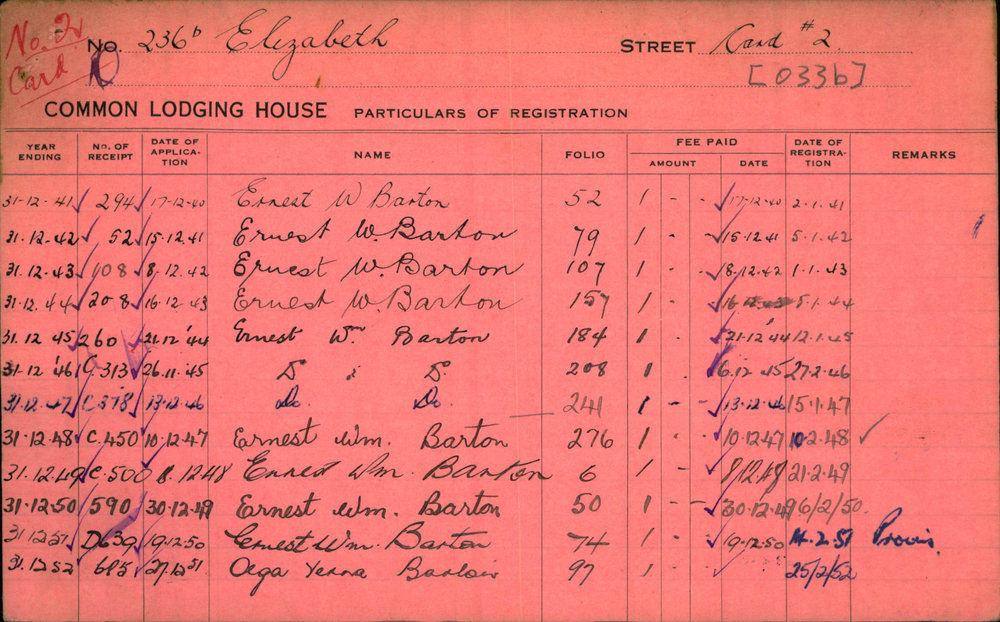 No. 2 Card
No. 236b Elizabeth STREET Card #2
[033b]
COMMON LODGING HOUSE PARTICULARS OF REGISTRATION
YEAR ENDING NO. OF RECEIPT DATE OF APPLICA-TION NAME FOLIO FEE PAID AMOUNT DATE DATE OF REGISTRA-TION REMARKS
31-12-41 294 17-12-40 Ernest W Barton 52 1 - - 17-12-40 2.1.41
31.12.42 52 15.12.41 Ernest W. Barton 79 1 - - 15.12.41 5.1.42
31.12.43 108 8.12.42 Ernest W. Barton 107 1 - - 8.12.42 1.1.43
31.12.44 208 16.12.43 Ernest W. Barton 157 1 - - 16.12.43 5.1.44
31.12.45 260 21.12.'44 Ernest Wm Barton 184 1 - - 21.12.'44 12.1.45
31.12.'46 C.313 26.11.45 Do " Do 208 1 - . 6.12.45 27.2.46
31.12.47 C.378 13.12.46 Do. Do. 241 1 - - 13.12.46 15.1.47
31.12.48 C.450 10.12.47 Ernest Wm. Barton 276 1 - - 10.12.47 10.2.48
31.12.49 C.500 8.12.48 Ernest Wm. Barton 6 1 - - 8.12.48 21.2.49
31.12.50 590 30.12.49 Ernest Wm. Barton 50 1 - - 30.12.49 6/2/50.
31.12.51 D639 19.12.50 Ernest Wm. Barton 74 1 - - 19.12.50 14.2.51 Provis.
31.12.52 695 27.12.51 97 1 - 25/2/52